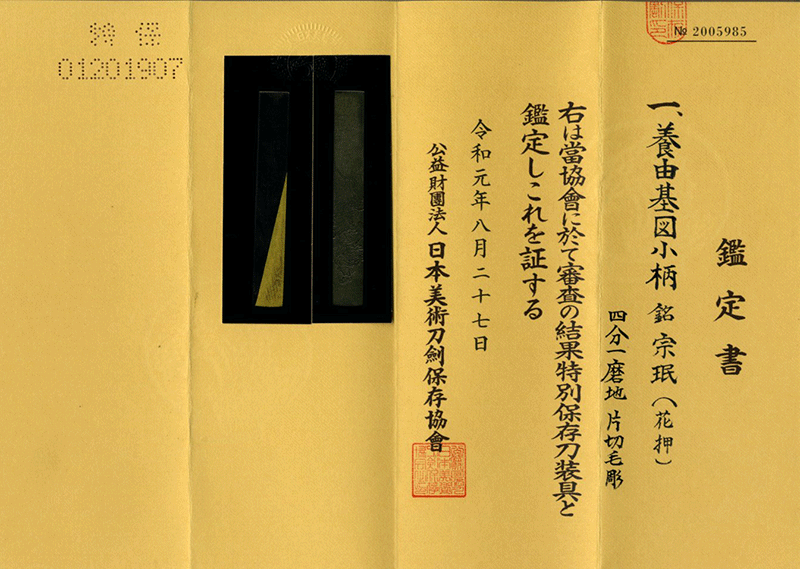 № 2005985
鑑定書
一、養由基図小柄 銘 宗珉(花押)
四分一磨地 片切毛彫
右は當協會に於て審査の結果特別保存刀装具と
鑑定しこれを証する
令和元年八月二十七日
公益財團法人 日本美術刀劍保存協會
特保
01201907